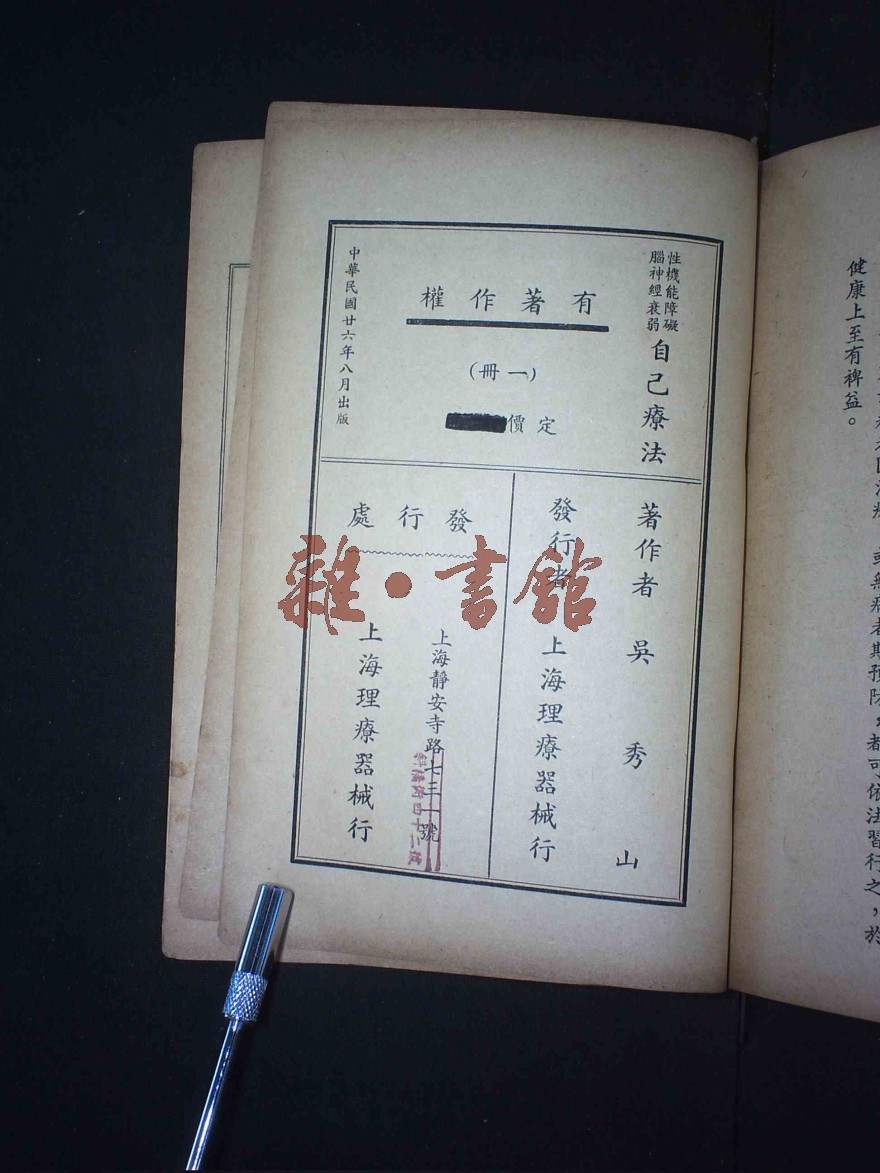 健康上至有裨益。
性機能障礙
腦神經衰弱
自己療法
有著作權
(一冊)
定價
中華民國廿六年八月出版
著作者 吳秀山
發行者 上海理療器械行
發行處
上海靜安寺路七三一號
上海理療器械行
雜·書館